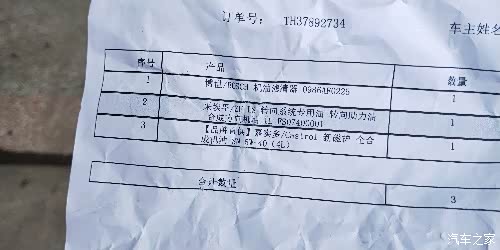 订单号: TH37892734
车主姓名
序号 产品 数量
1 博世/BOSCH 机油滤清器 0986AF0225 1
2 采埃孚/ZF TS 转向系统专用油 转向助力油 1
合成方向机油 1L
3 【品牌直供】嘉实多/Castrol 新磁护 全合 1
成机油 5W-40 (4L)
合计数量 3
汽车之家